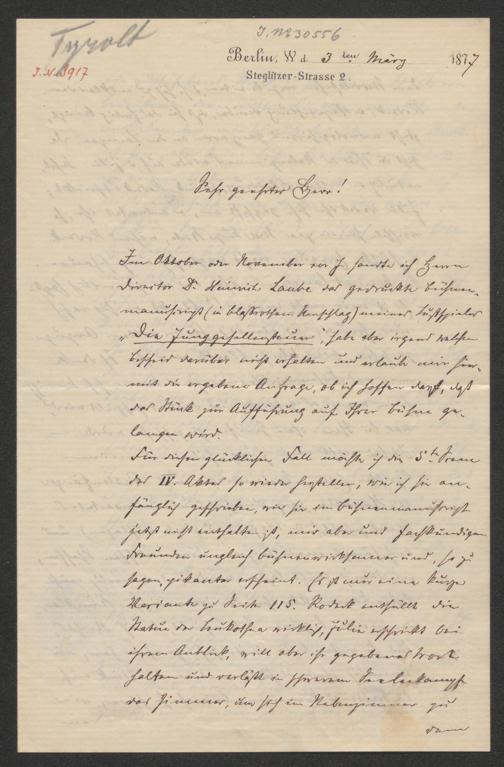 Tyrolt
J.N. 30556
J.N. 3917
Berlin, W d. 3 ten März 1877
Steglitzer-Strasse 2.
Sehr geehrter Herr!
Im Oktober oder November vor. J. sandte ich Herrn
Director Dr. Heinrich Laube das gedruckte Bühnen-
manuscript (in blaßrothem Umschlag) meines Lustspieles
„Die Junggesellensteuer", habe aber irgend welchen
Bescheid darüber nicht erhalten und erlaube mir hier-
mit die ergebene Anfrage, ob ich hoffen darf, daß
das Stück zur Aufführung auf Ihrer Bühne ge-
langen wird.
Für diesen glücklichen Fall möchte ich die 5te Scene
des IV. Aktes so wieder herstellen, wie ich sie an-
fänglich geschrieben, wie sie im Bühnenmanuscript
jetzt nicht enthalten ist, mir aber und fachkundigen
Freunden ungleich bühnenwirksamer und, so zu
sagen, pikanter erscheint. Es ist nur eine kurze
Variante zu Seite 115. Rodeck enthüllt die
Statue der Leukothea wirklich, Julie erschrickt bei
ihrem Anblick, will aber ihr gegebenes Wort
halten und verläßt in schwerem Seelenkampfe
das Zimmer, um sich im Nebenzimmer zu
dem